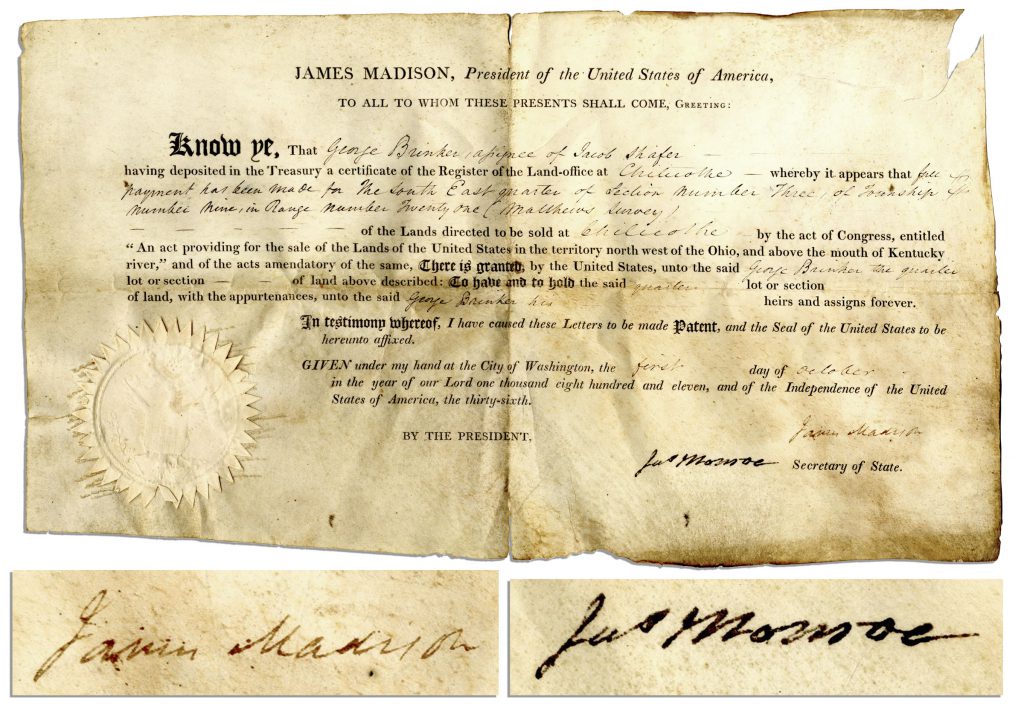 JAMES MADISON, President of the United States of America,
TO ALL TO WHOM THESE PRESENTS SHALL COME, GREETING:
Know ye, That George Brinker, assignee of Jacob Shafer — —
having deposited in the Treasury a certificate of the Register of the Land-office at Chilicothe — whereby it appears that full
payment has been made for the South East quarter of Section Number Three, of Township
number nine, in Range number Twenty one (Matthews Survey)
— — — — — of the Lands directed to be sold at Chilicothe — by the act of Congress, entitled
"An act providing for the sale of the Lands of the United States in the territory north west of the Ohio, and above the mouth of Kentucky
river," and of the acts amendatory of the same, There is granted, by the United States, unto the said George Brinker the quarter
lot or section — — of land above described: To have and to hold the said quarter — lot or section
of land, with the appurtenances, unto the said George Brinker his heirs and assigns forever.
In testimony whereof, I have caused these Letters to be made Patent, and the Seal of the United States to be
hereunto affixed.
GIVEN under my hand at the City of Washington, the first day of october
in the year of our Lord one thousand eight hundred and eleven, and of the Independence of the United
States of America, the thirty-sixth.
James Madison
BY THE PRESIDENT,
Jas Monroe Secretary of State.
James Madison
Jas Monroe